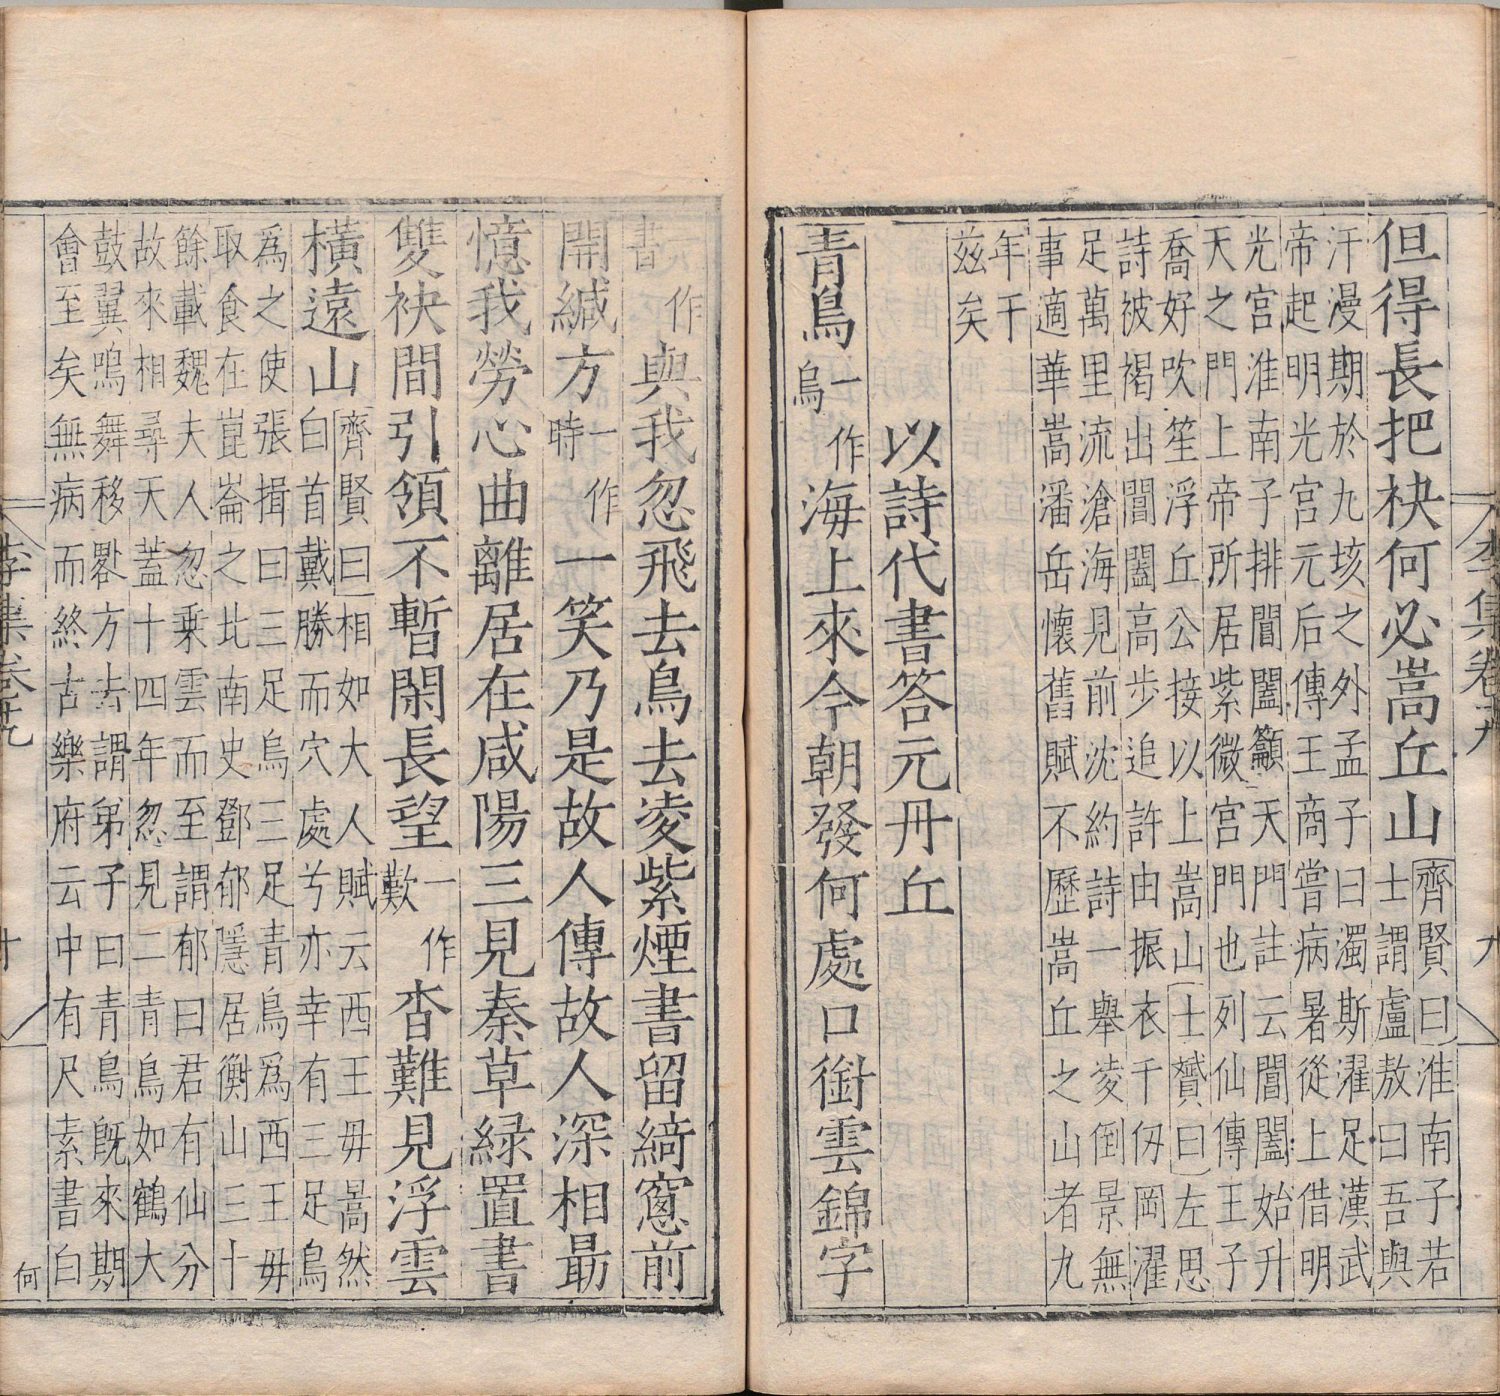 李集卷十九 九
但得長把袂何必嵩丘山齊賢曰淮南子若
士謂盧敖曰吾與
汗漫期於九垓之外孟子曰濁斯濯足漢武
帝起明光宮元后傳王商嘗病暑從上借明
光宮淮南子排閶闔籲天門註云閶闔始升
天之門上帝所居紫微宮門也列仙傳王子
喬好吹笙浮丘公接以上嵩山士贇曰左思
詩被褐出閶闔高步追許由振衣千仞岡濯
足萬里流滄海見前沈約詩一舉凌倒景無
事適華嵩潘岳懷舊賦不歷嵩丘之山者九
年于
茲矣
以詩代書答元丹丘
青鳥一作烏海上來今朝發何處口銜雲錦字
一作書與我忽飛去鳥去凌紫煙書留綺窻前
開緘方一作時一笑乃是故人傳故人深相勗
憶我勞心曲離居在咸陽三見秦草綠置書
雙袂間引領不暫閑長望一作歎杳難見浮雲
橫遠山齊賢曰相如大人賦云西王毋暠然
白首戴勝而穴處兮亦幸有三足烏
為之使張揖曰三足烏三足青鳥為西王毋
取食在崑崙之北南史鄧郁隱居衡山三十
餘載魏夫人忽乘雲而至謂郁曰君有仙分
故來相尋天蓋十四年忽見二青鳥如鶴大
鼓翼鳴舞移晷方去謂弟子曰青鳥既來期
會至矣無病而終古樂府云中有尺素書白
何
李集卷十九 十